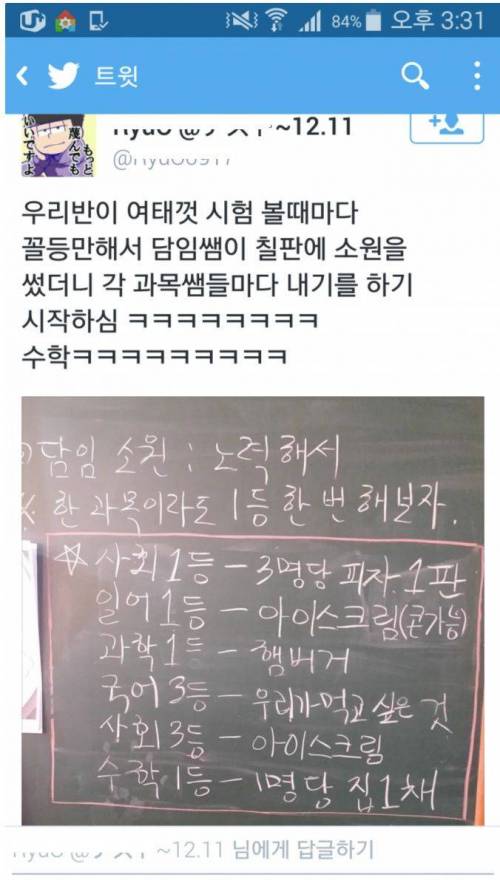 84% 오후 3:31
트윗
~12.11
もっと
蔑んでも
いいですよ
우리반이 여태껏 시험 볼때마다
꼴등만해서 담임쌤이 칠판에 소원을
썼더니 각 과목쌤들마다 내기를 하기
시작하심 ㅋㅋㅋㅋㅋㅋㅋㅋ
수학ㅋㅋㅋㅋㅋㅋㅋㅋㅋ
담임 소원 : 노력해서
한 과목이라도 1등 한 번 해보자.
☆ 사회 1등 - 3명당 피자 1판
일어 1등 - 아이스크림(콘가능)
과학 1등 - 햄버거
국어 3등 - 우리가 먹고 싶은 것
사회 3등 - 아이스크림
수학 1등 - 1명당 집 1채
~12.11 님에게 답글하기